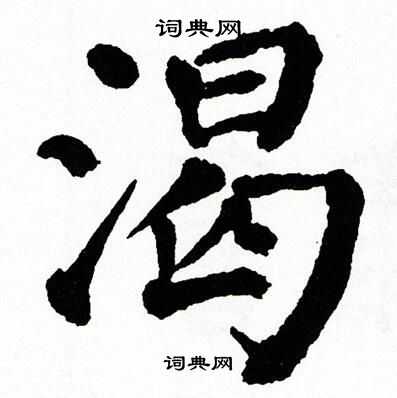 词典网
渴
词典网